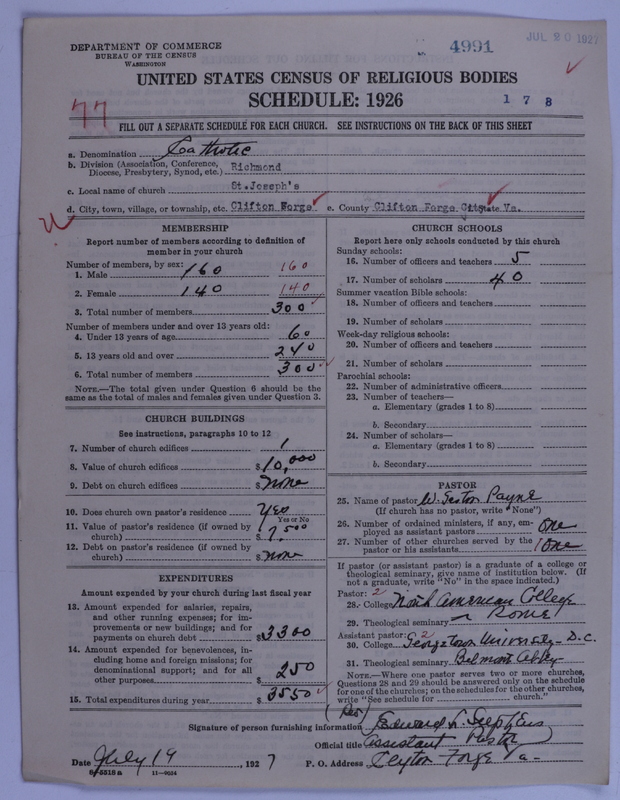 DEPARTMENT OF COMMERCE
BUREAU OF THE CENSUS
WASHINGTON
4991
JUL 20 1927
UNITED STATES CENSUS OF RELIGIOUS BODIES
SCHEDULE: 1926
77
1 7 8
FILL OUT A SEPARATE SCHEDULE FOR EACH CHURCH. SEE INSTRUCTIONS ON THE BACK OF THIS SHEET
a. Denomination Catholic
b. Division (Association, Conference, Diocese, Presbytery, Synod, etc.) Richmond
c. Local name of church St.Joseph's
d. City, town, village, or township, etc. Clifton Forge e. County Clifton Forge City State Va.
MEMBERSHIP
Report number of members according to definition of
member in your church
Number of members, by sex:
1. Male 160 160
2. Female 140 140
3. Total number of members 300
Number of members under and over 13 years old:
4. Under 13 years of age 60
5. 13 years old and over 240
6. Total number of members 300
NOTE.—The total given under Question 6 should be the
same as the total of males and females given under Question 3.
CHURCH BUILDINGS
See instructions, paragraphs 10 to 12
7. Number of church edifices 1
8. Value of church edifices $10,000
9. Debt on church edifices $none
10. Does church own pastor's residence yes
Yes or No
11. Value of pastor's residence (if owned by
church) $7,500
12. Debt on pastor's residence (if owned by
church) $none
EXPENDITURES
Amount expended by your church during last fiscal year
13. Amount expended for salaries, repairs,
and other running expenses; for im-
provements or new buildings; and for
payments on church debt $3300
14. Amount expended for benevolences, in-
cluding home and foreign missions; for
denominational support; and for all
other purposes $250
15. Total expenditures during year $3550
CHURCH SCHOOLS
Report here only schools conducted by this church
Sunday schools:
16. Number of officers and teachers 5
17. Number of scholars 40
Summer vacation Bible schools:
18. Number of officers and teachers
19. Number of scholars
Week-day religious schools:
20. Number of officers and teachers
21. Number of scholars
Parochial schools:
22. Number of administrative officers
23. Number of teachers—
a. Elementary (grades 1 to 8)
b. Secondary
24. Number of scholars—
a. Elementary (grades 1 to 8)
b. Secondary
PASTOR
25. Name of pastor W. Payne
(If church has no pastor, write "None")
26. Number of ordained ministers, if any, em-
ployed as assistant pastors one
27. Number of other churches served by the
pastor or his assistants 1 one
If pastor (or assistant pastor) is a graduate of a college or
theological seminary, give name of institution below. (If
not a graduate, write "No" in the space indicated.)
Pastor: 2
28. College North American College
29. Theological seminary Rome
Assistant pastor: 2
30. College Georgetown University - D.C.
31. Theological seminary Belmont Abbey
NOTE.—Where one pastor serves two or more churches,
Questions 28 and 29 should be answered only on the schedule
for one of the churches; on the schedules for the other churches,
write "See schedule for church."
Signature of person furnishing information (Rev) Edward L.
Official title Assistant Pastor
Date July 19, 1927 P. O. Address Forge Va-
8-5518 a 11-9054